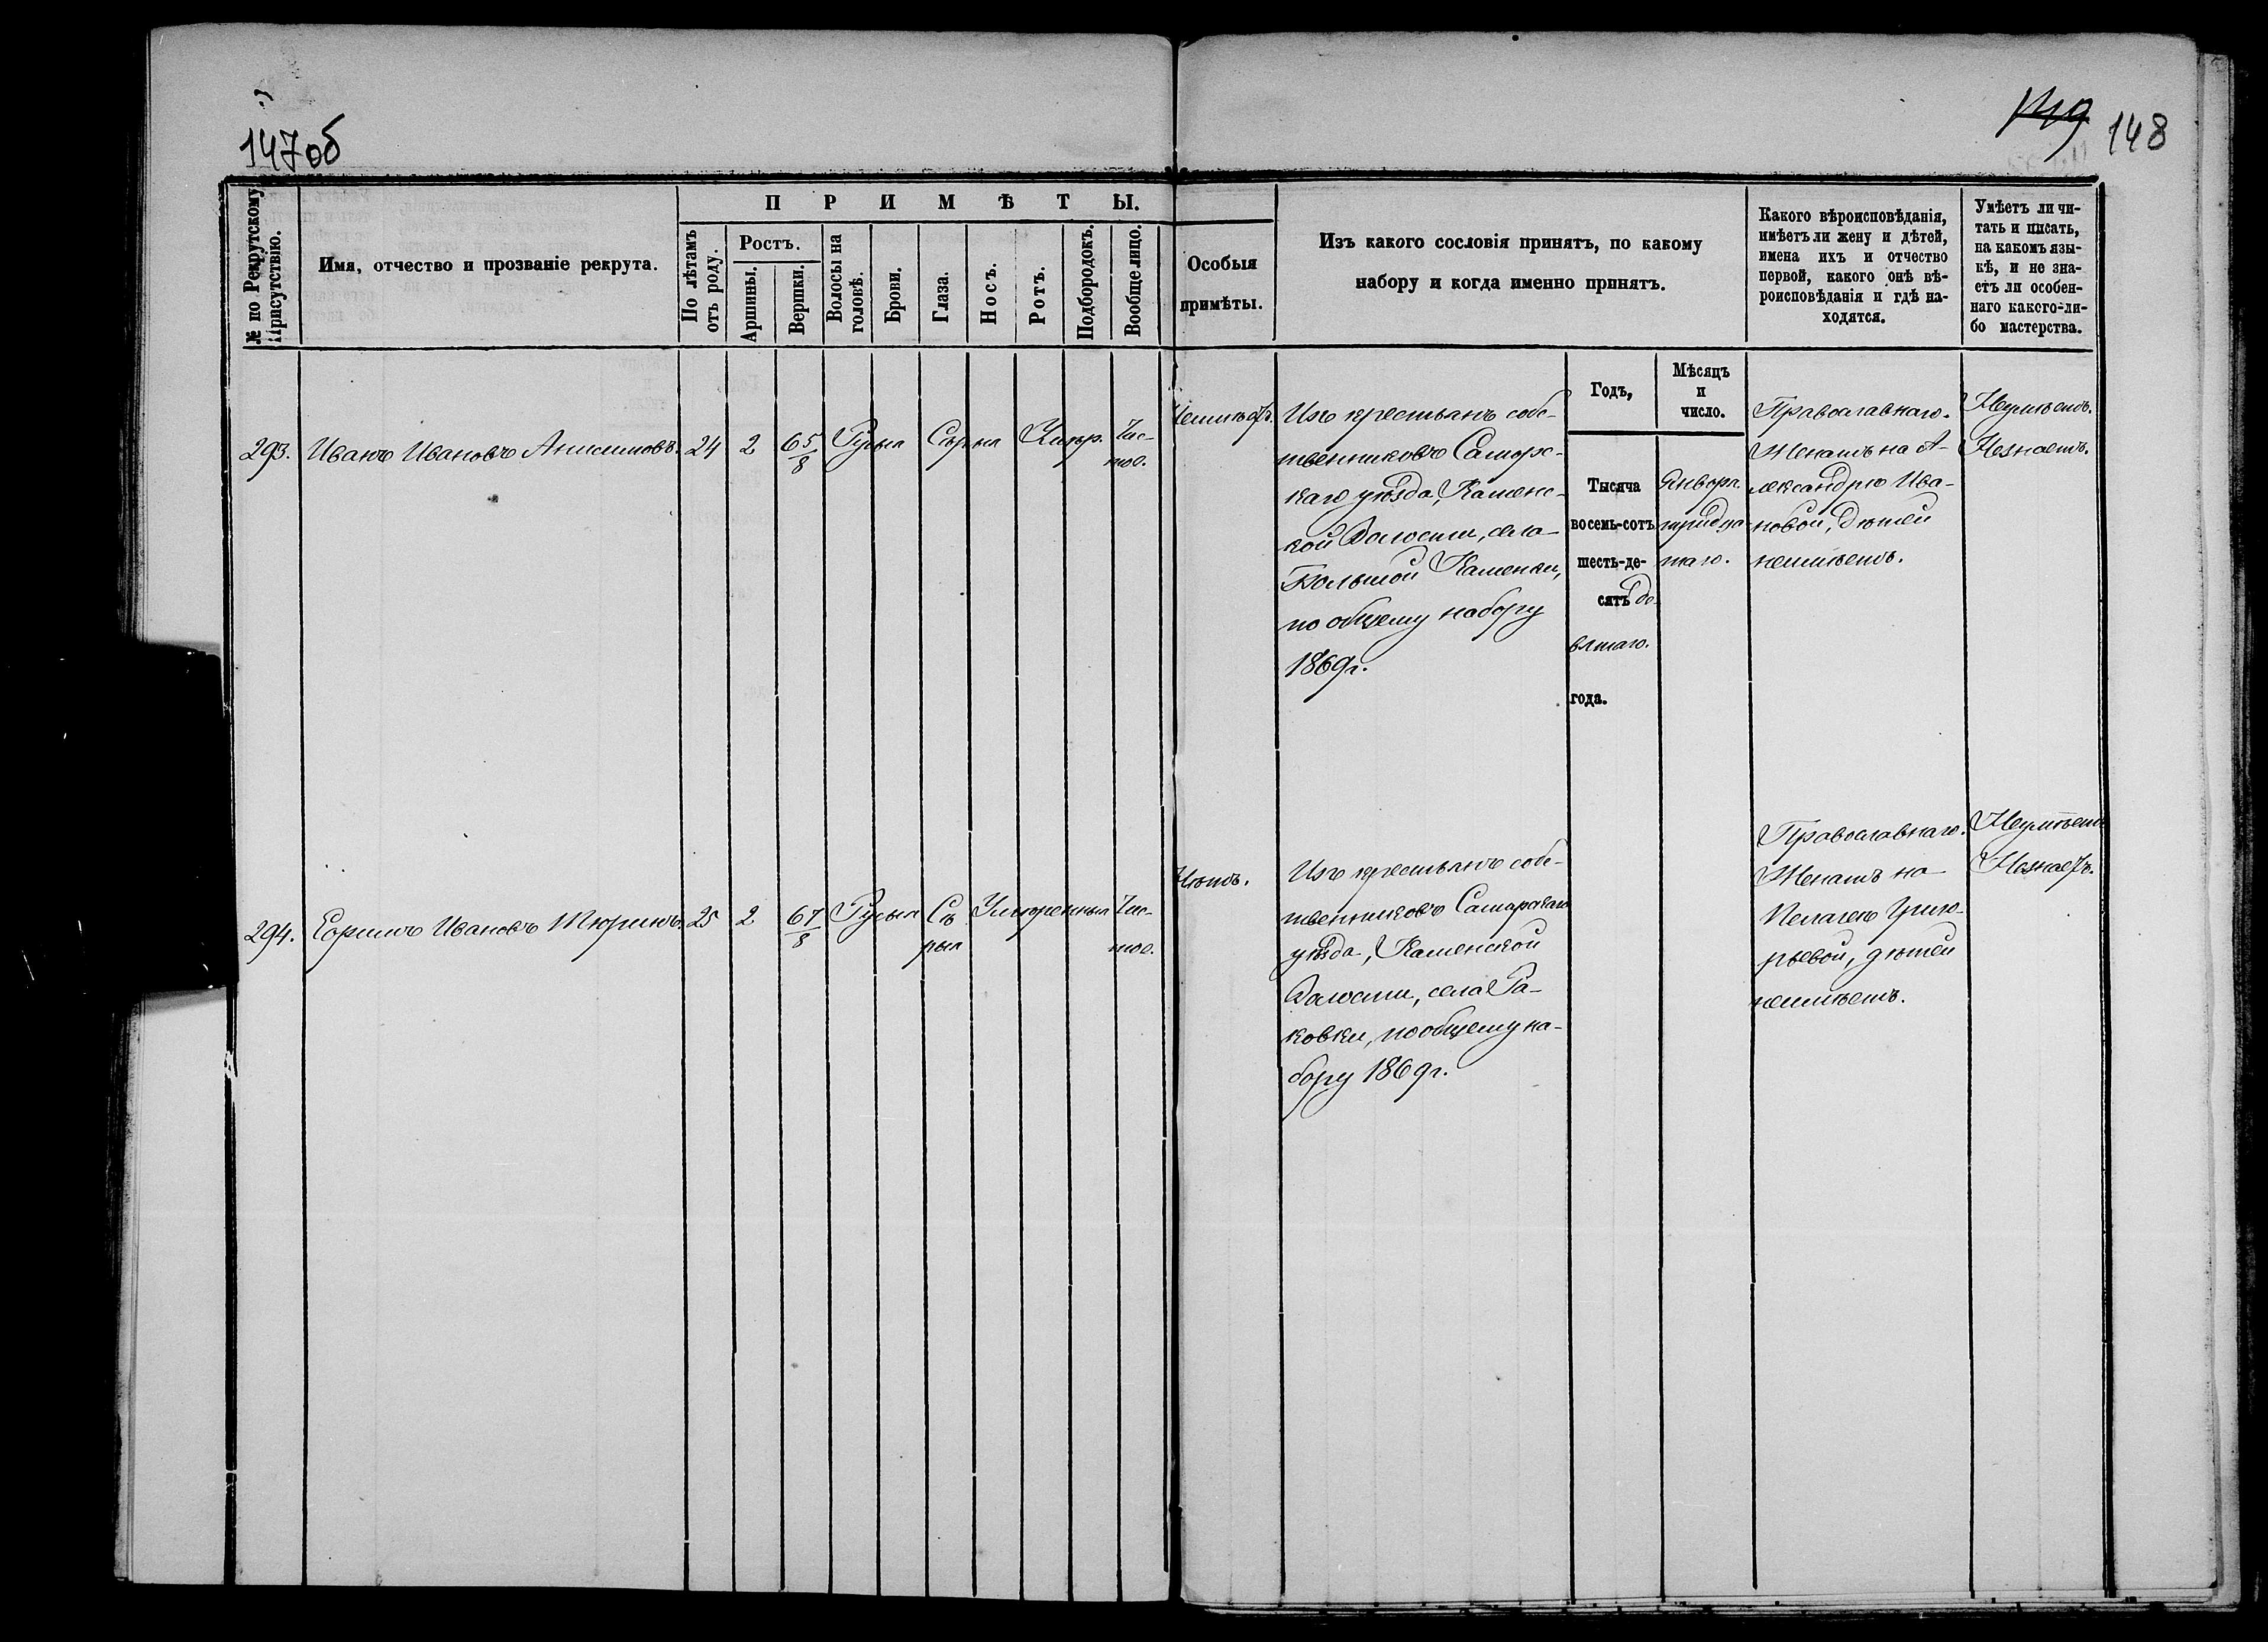 147об
149 148
№ по Рекрутскому Присутствію.
Имя, отчество и прозваніе рекрута.
ПРИМѢТЫ.
По лѣтамъ отъ роду.
Ростъ.
Аршины.
Вершки.
Волосы на головѣ.
Брови.
Глаза.
Носъ.
Ротъ.
Подбородокъ.
Вообще лицо.
Особыя
примѣты.
Изъ какого сословія принятъ, по какому
набору и когда именно принятъ.
Какого вѣроисповѣданія,
имѣетъ ли жену и дѣтей,
имена ихъ и отчество
первой, какого онѣ вѣ-
роисповѣданія и гдѣ на-
ходятся.
Умѣетъ ли чи-
тать и писать,
на какомъ язы-
кѣ, и не зна-
етъ ли особен-
наго какого-ли-
бо мастерства.
Годъ,
Мѣсяцъ
и
число.
293. Иванъ Ивановъ Анисимовъ. 24 2 6 5/8 Русыя Сѣрыя Умѣр. Чис-
тое.
Неимѣетъ.
Изъ крестьянъ собс-
твенниковъ Самарс-
каго уѣзда, Каменс-
кой Волости, села
Большой Каменки,
по общему набору
1869г.
Тысяча
восемь-сотъ
шесть-де-
сятъ де-
вятаго.
года.
Января.
тридца
таго.
Православнаго.
Женатъ на А-
лександрѣ Ива-
новой, дѣтей
неимѣетъ.
Неумѣетъ.
Незнаетъ.
294. Ефримъ Ивановъ Тюринъ. 25 2 6 7/8 Русыя Сѣ Умѣренныя Чис-
рыя тое.
Нѣтъ.
Изъ крестьянъ собс-
твенниковъ Самарскаго
уѣзда, Каменской
Волости, села Ра-
ковки, по общему на-
бору 1869г.
Православнаго.
Женатъ на
Пелагеѣ Григо-
рьевой, дѣтей
неимѣетъ.
Неумѣетъ
Незнаетъ.